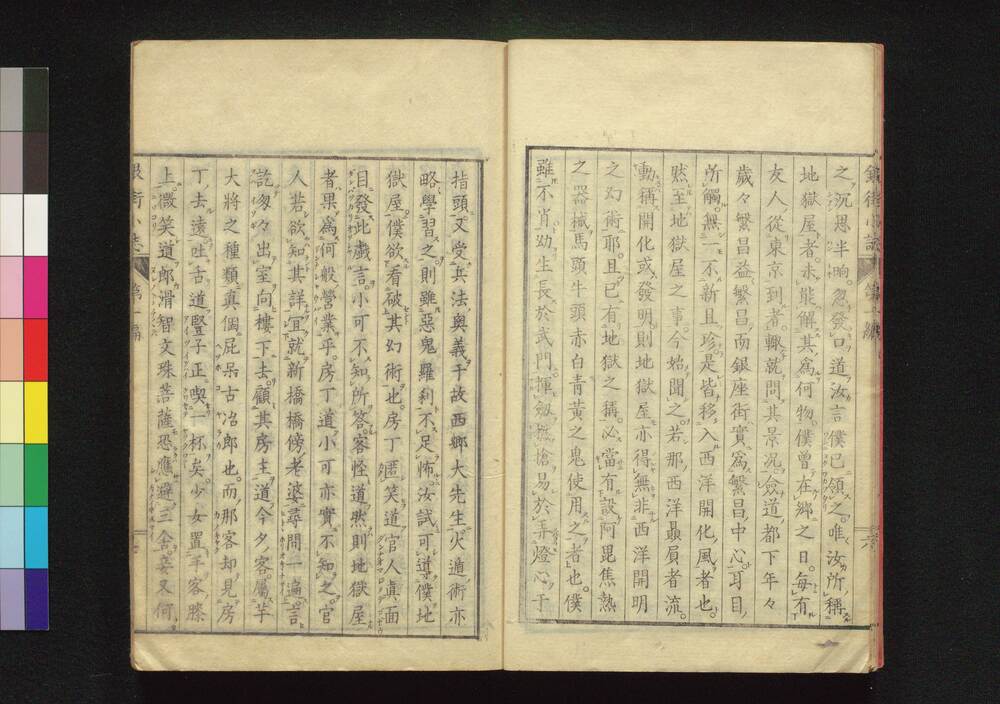 之沉思半晌。忽發口道汝言僕已領之。唯汝所稱
地獄屋者。未能解其爲何物。僕曾在鄉之日。每有
友人從東京到者。輙就問其景况。僉道都下年々
歲々繁昌益繁昌。南銀座街實爲繁昌中心。耳目
所觸。無一不新且珍。是皆移入西洋開化風者也。
然至地獄屋之事。今始聞之。若那西洋贔屓者流。
動稱開化或發明。則地獄屋亦得無非西洋開明
之幻術耶。且已有地獄之稱。必當有設阿毘焦熱
之器械。馬頭牛頭赤白青黃之鬼使用之者也。僕
雖不肖。幼生長於武門。揮劔 搶易於弄燈心于
指頭。又受兵法奥義于故西鄉大先生。火遁術亦
略學習之。則雖惡鬼羅刹不足怖。汝試可道導僕地
獄屋。僕欲看破其幻術也。房丁匿笑道官人眞面
目發此戲言。小可不知所答。客怪道然則地獄屋
者果爲何般營業乎。房丁道小可亦實不知之。官
人若欲知其詳。宜就新橋橋傍老婆尋問一遍。言
訖匆々出室向樓下去。顧其房主道今夕客。屬芋
大將之種類。眞個屁呆古冶郎也。而那客却見房
丁去遠。吐舌道豎子正喫一杯矣。少女置 客膝
上。微笑道郎滑智文珠菩薩恐應避三舍。妾又何
銀街小誌 第一編 六
銀街小誌 第一編